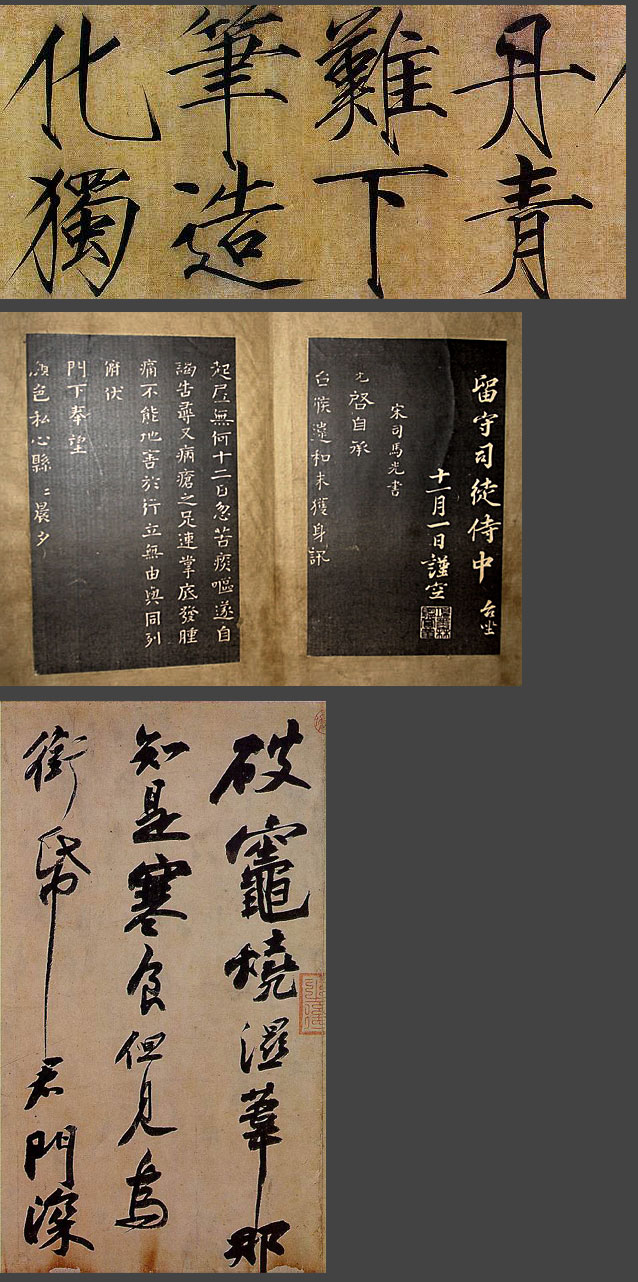 丹青
難下
筆造
化獨
留守司徒侍中 台坐
十一月一日謹空
宋司馬光書
光啓自承
台候違和未獲身訊
起居無何十二日忽苦痰嘔遂自
謁告尋又病瘡之足連掌底發腫
痛不能地害於行立無由與同列
俯伏
門下奉望
顏色私心縣〻晨夕
破竈燒濕葦那
知是寒食但見烏
銜帋君門深